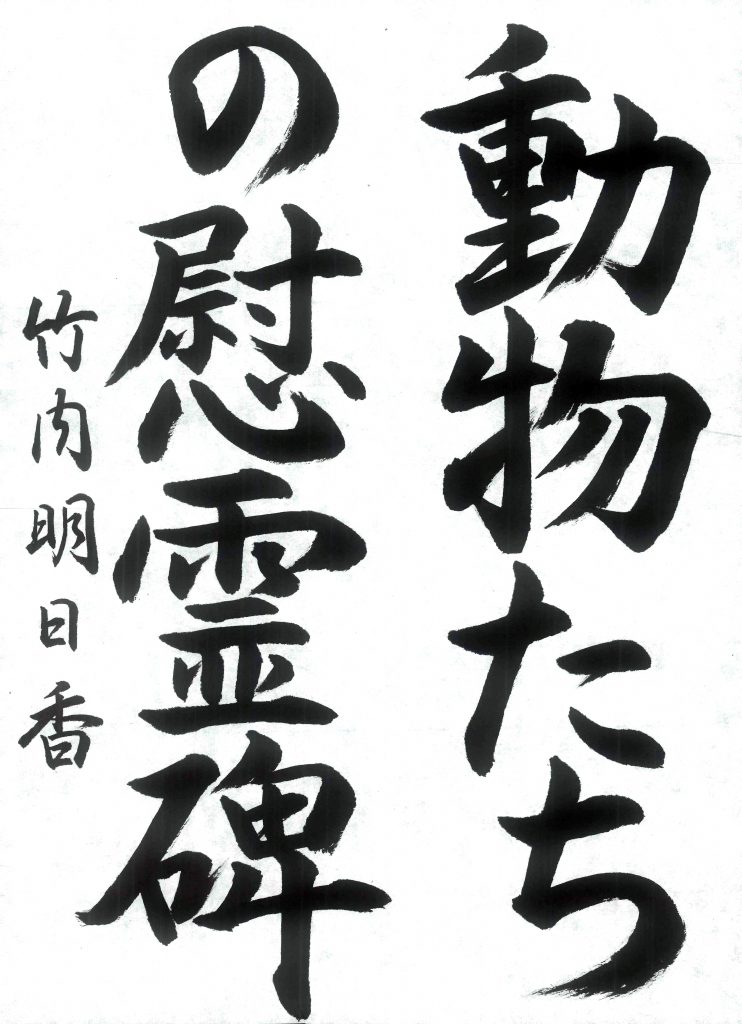 動物たち
の慰霊碑
竹内明日香